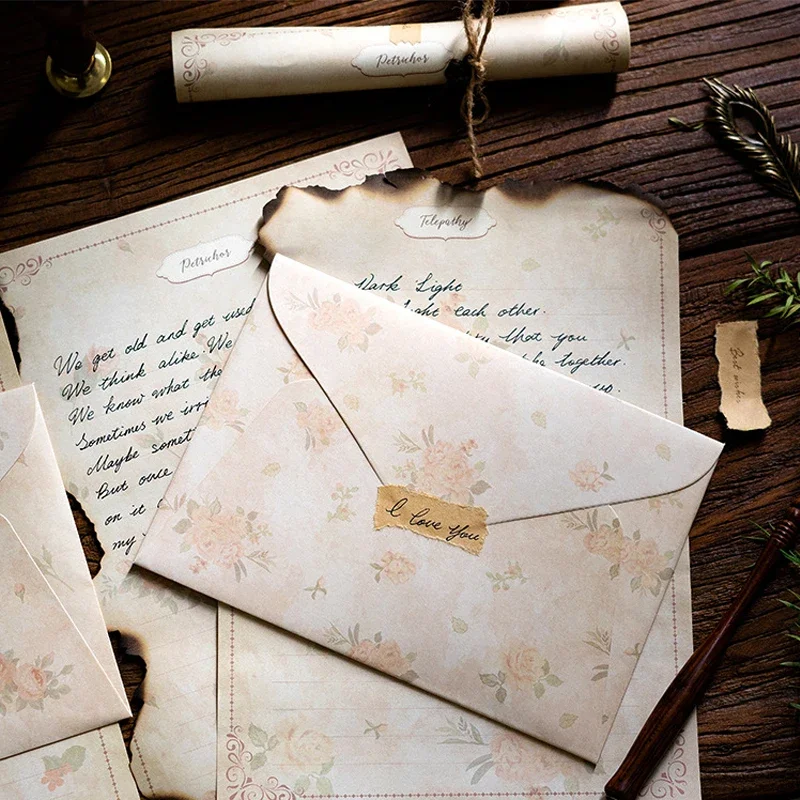 Petrichor
Petrichor
We get old and get used
We think alike. We
We know what the
Sometimes we irri
Maybe somet
But once
on it
my
Telepathy
Dark Light
light each other.
that you
be together.
I love you
Best wishes